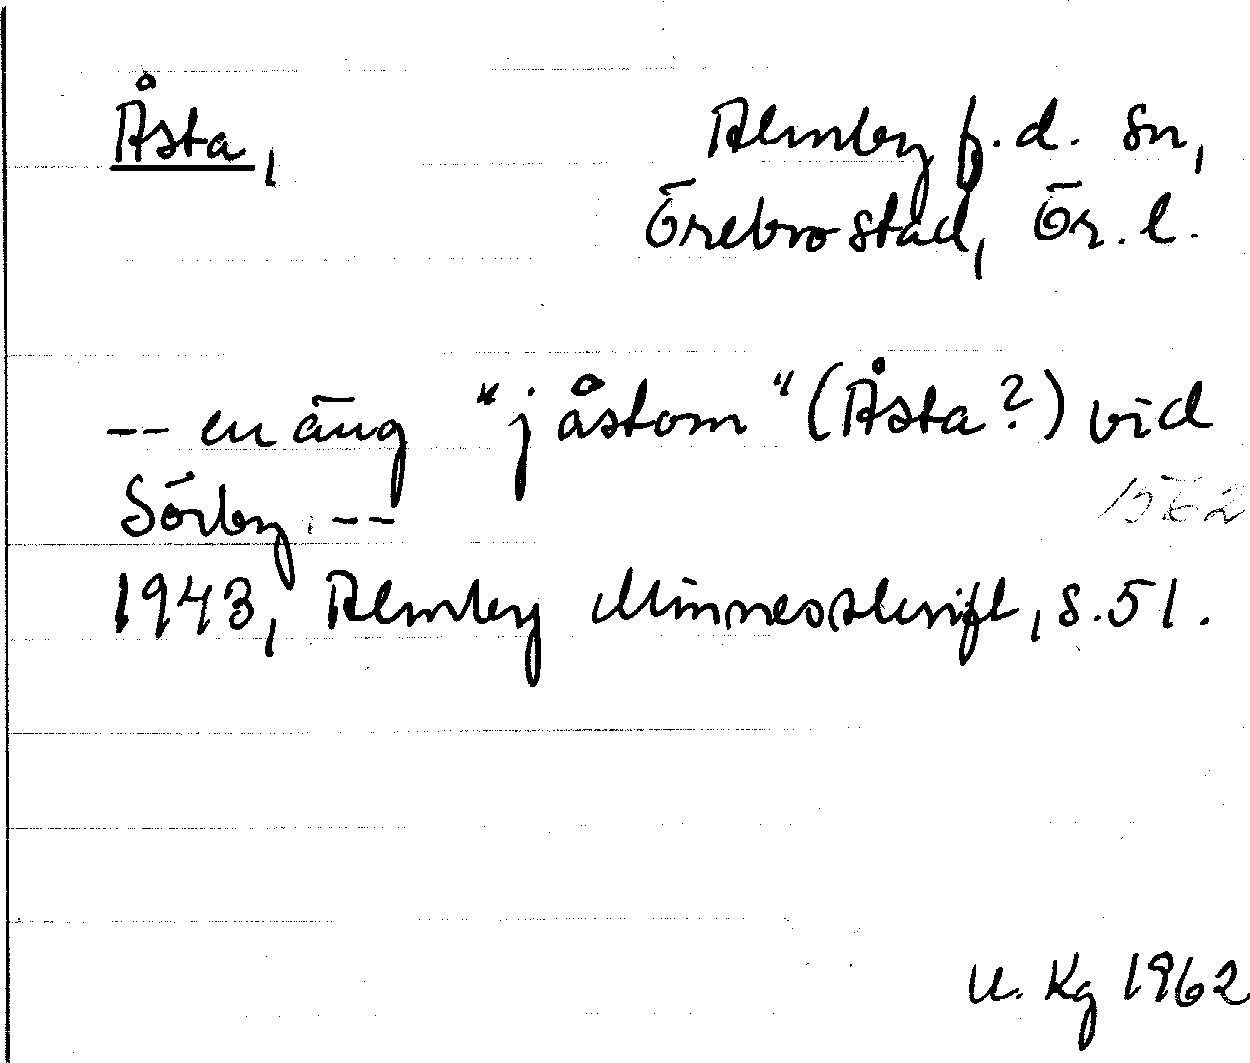 Åsta, Almby f.d. sn,
Örebro stad, Ör. l.
-- en äng "j åstom" (Åsta?) vid
Sörby. --
1562
1943, Almby Minnesskrift, s. 51.
U. Kg 1962